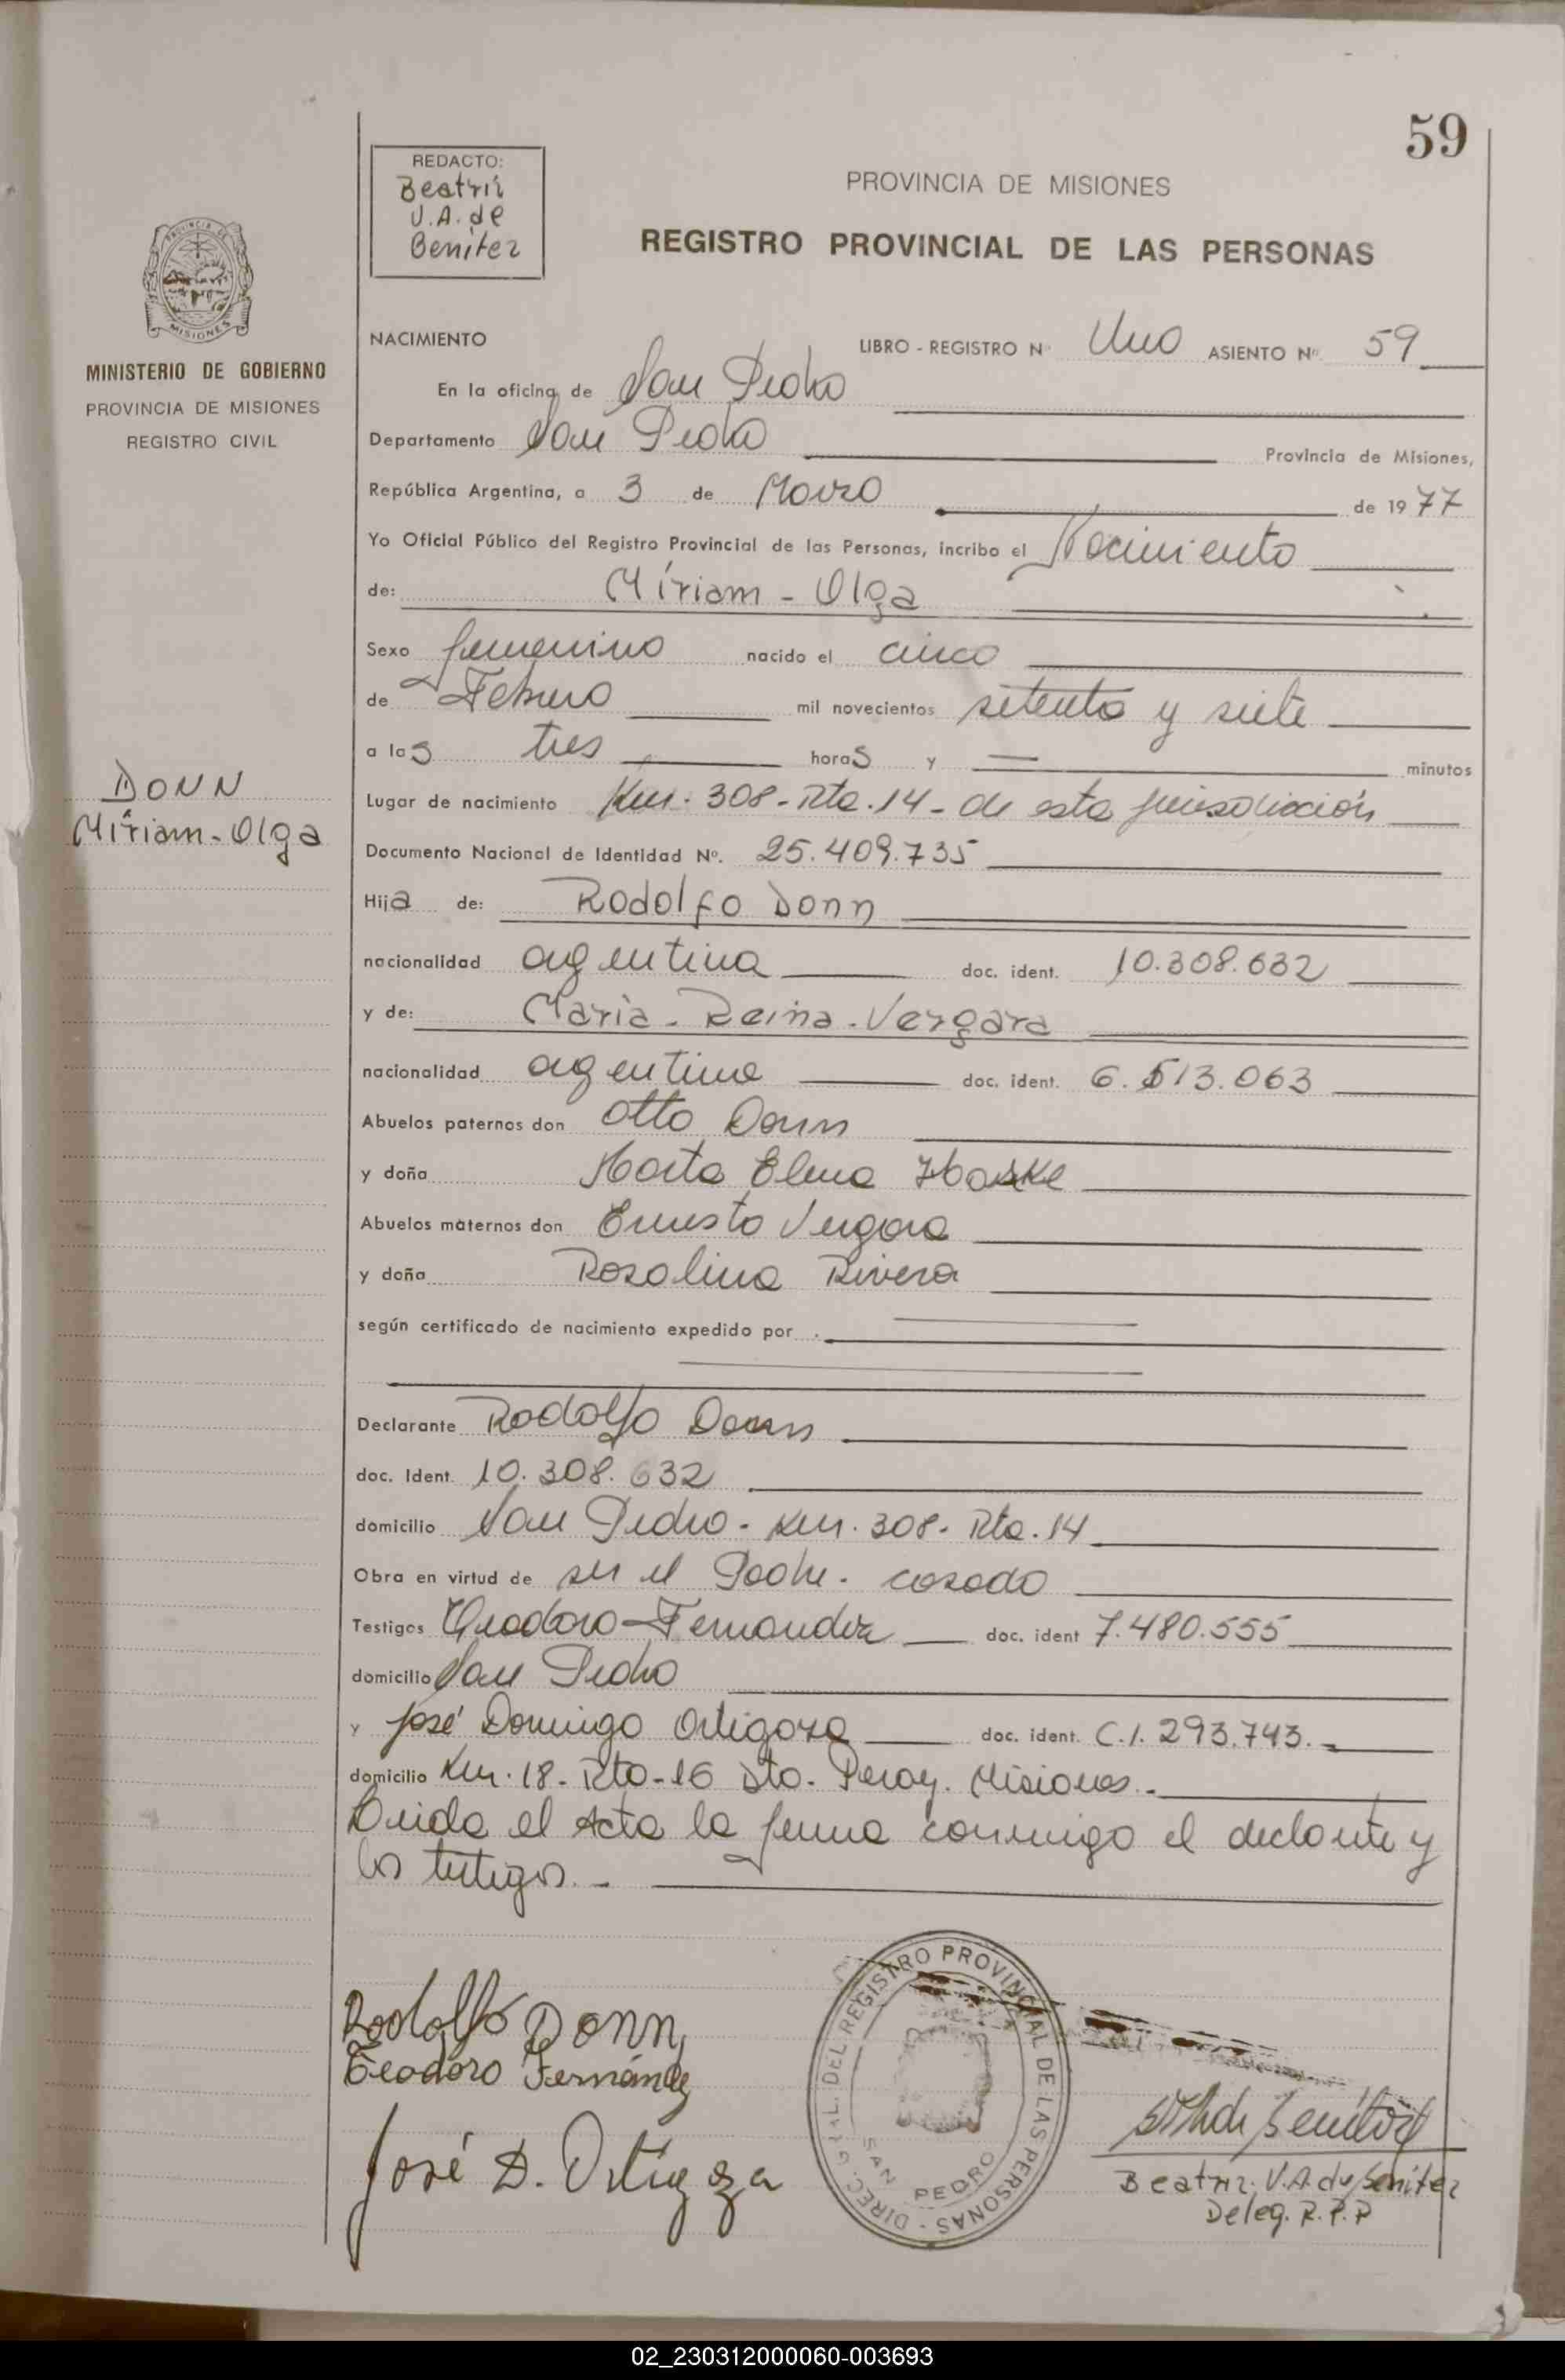 59
REDACTO:
Beatriz
V.A. de
Benítez
PROVINCIA DE MISIONES
REGISTRO PROVINCIAL DE LAS PERSONAS
PROVINCIA DE
MISIONES
MINISTERIO DE GOBIERNO
PROVINCIA DE MISIONES
REGISTRO CIVIL
NACIMIENTO LIBRO - REGISTRO Nº Uno ASIENTO Nº 59
En la oficina de San Pedro
Departamento San Pedro Provincia de Misiones,
República Argentina, a 3 de Marzo de 1977
Yo Oficial Público del Registro Provincial de las Personas, incribo el Nacimiento
de: Míriam - Olga
Sexo femenino nacido el cinco
de Febrero mil novecientos setenta y siete
a las tres horas y — minutos
DONN
Míriam - Olga
Lugar de nacimiento Km. 308 - Rta. 14 - de esta jurisdicción
Documento Nacional de Identidad Nº. 25.409.735
Hija de: Rodolfo Donn
nacionalidad argentina doc. ident. 10.308.632
y de: María - Reina - Vergara
nacionalidad argentina doc. ident. 6.513.063
Abuelos paternos don Otto Donn
y doña Elena
Abuelos maternos don Ernesto Vergara
y doña Rosalina Rivera
según certificado de nacimiento expedido por
Declarante Rodolfo Donn
doc. Ident. 10.308.632
domicilio San Pedro - Km. 308 - Rta. 14
Obra en virtud de ser el Padre - casado
Testigos Teodoro Fernandez doc. ident 7.480.555
domicilio San Pedro
y José Domingo Ortigoza doc. ident. C.I. 293.743.-
domicilio Km. 18 - Rta - 16 Dto. Misiones.-
el Acta la firma conmigo el y
los testigos.-
Rodolfo Donn
Teodoro Fernández
José D. Ortigoza
DIREC. GRAL. DEL REGISTRO PROVINCIAL DE LAS PERSONAS -
SAN PEDRO
Beatriz V.A de Benitez
Deleg. R.P.P
02_230312000060-003693